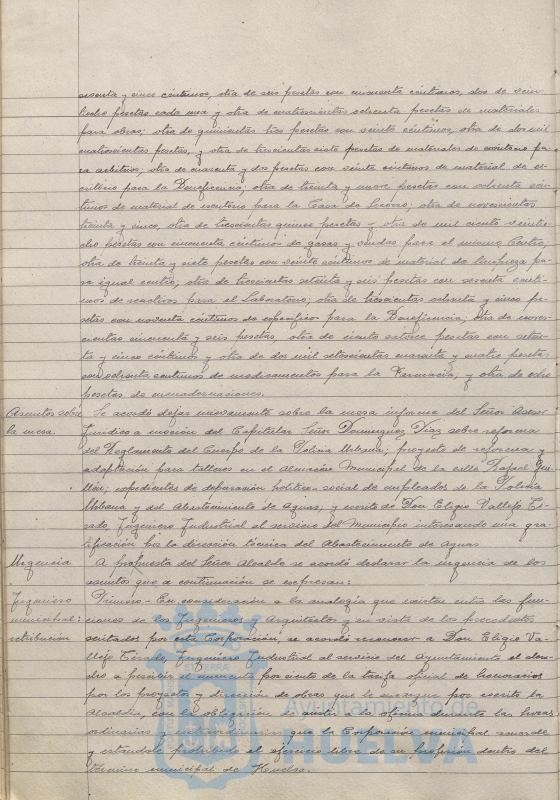 sesenta y cinco céntimos, otra de seis pesetas con cincuenta céntimos, dos de vein-
tiocho pesetas cada una y otra de cuatrocientas ochenta pesetas de materiales
para obras; otra de quinientas tres pesetas con veinte céntimos, otra de dos mil
cuatrocientas pesetas, y otra de trescientas siete pesetas de materiales de escritorio pa-
ra arbitrios; otra de cuarenta y dos pesetas con veinte céntimos de material de es-
critorio para la Beneficencia; otra de treinta y nueve pesetas con ochenta cén-
timos de material de escritorio para la Casa de Socorro; otra de novecientas
treinta y cinco, otra de trescientas quince pesetas y otra de mil ciento veintio-
cho pesetas con cincuenta céntimos de gasas y vendas para el mismo Centro,
otra de treinta y siete pesetas con veinte céntimos de material de limpieza pa-
ra igual centro; otra de trescientas setenta y seis pesetas con sesenta cénti-
mos de reactivos para el Laboratorio; otra de trescientas ochenta y cinco pe-
setas con noventa céntimos de específicos para la Beneficencia; otra de nove-
cientas cincuenta y seis pesetas, otra de ciento catorce pesetas con seten-
ta y cinco céntimos y otra de dos mil setecientas cuarenta y cuatro pesetas
con ochenta céntimos de medicamentos para la Farmacia; y otra de ocho
pesetas de encuadernaciones.
Asuntos sobre Se acordó dejar nuevamente sobre la mesa informe del Señor Asesor
la mesa. Jurídico a moción del Capitular Señor Domínguez Díaz sobre reforma
del Reglamento del Cuerpo de la Policía Urbana; proyecto de reforma y
adaptación para talleres en el Almacén Municipal de la calle Rafael Gui-
llén; expedientes de depuración político-social de empleados de la Policía
Urbana y del Abastecimiento de Aguas; y escrito de Don Eligio Vallejo Ti-
rado, Ingeniero Industrial al servicio del Municipio interesando una gra-
tificación por la dirección técnica del Abastecimiento de Aguas
Urgencia A propuesta del Señor Alcalde se acordó declarar la urgencia de los
asuntos que a continuación se expresan:
Ingeniero Primero - En consideración a la analogía que existen entre las fun-
municipal: ciones de los Ingenieros y Arquitectos y en vista de los precedentes
retribución sentados por esta Corporación, se acordó reconocer a Don Eligio Va-
llejo Tirado, Ingeniero Industrial al servicio del Ayuntamiento el dere-
cho a percibir el cincuenta por ciento de la tarifa oficial de honorarios
por los proyectos y dirección de obras que le encargue por escrito la
Alcaldía, con la obligación de asistir a la oficina durante las horas
ordinarias y extraordinarias que la Corporación municipal acuerde
y estándole prohibido el ejercicio libre de su profesión dentro del
término municipal de Huelva.
Ayuntamiento de
HUELVA